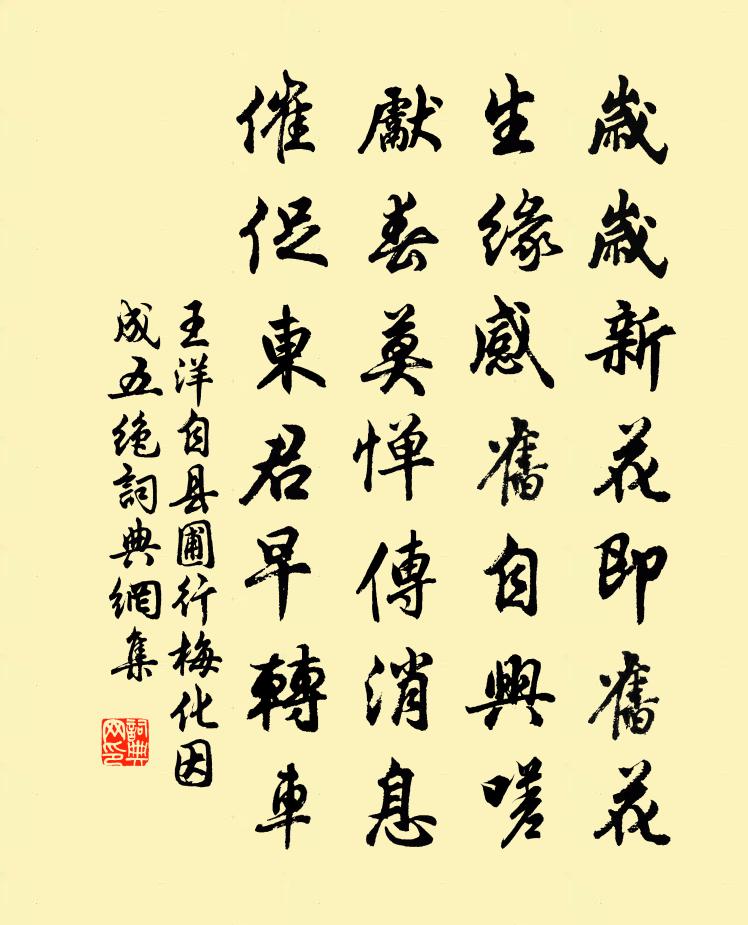 歲歲新花即舊花
生緣感舊自興嗟
獻春莫憚傳消息
催促東君早轉車
王洋自县圃行梅化因
成五绝詞典網集
詞典
网印